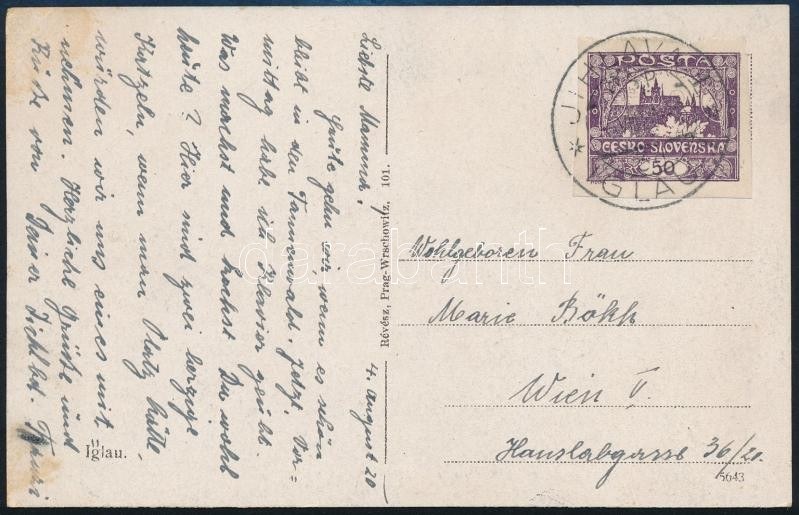 Liebste Mamma!
4. August 20
Heute gehn wir, wenn es schön
bleibt in den Tannenwald. Jetzt Vor=
mittag habe ich Klavier geübt.
Was machst und kochst Du wohl
heute? Hier sind zwei herzige
Katzeln, wenn man Platz hätte
würden wir uns eines mit
nehmen. Herzliche Grüße und
Küße von Deiner
Iglau.
11
Révész, Prag-Wrschowitz, 101.
POSTA
ČESKO SLOVENSKA
50
JIHLAVA
IGLAU
Wohlgeboren Frau
Marie Bökh
Wien V.
Hauslabgasse 36/20.
5643
darabanth